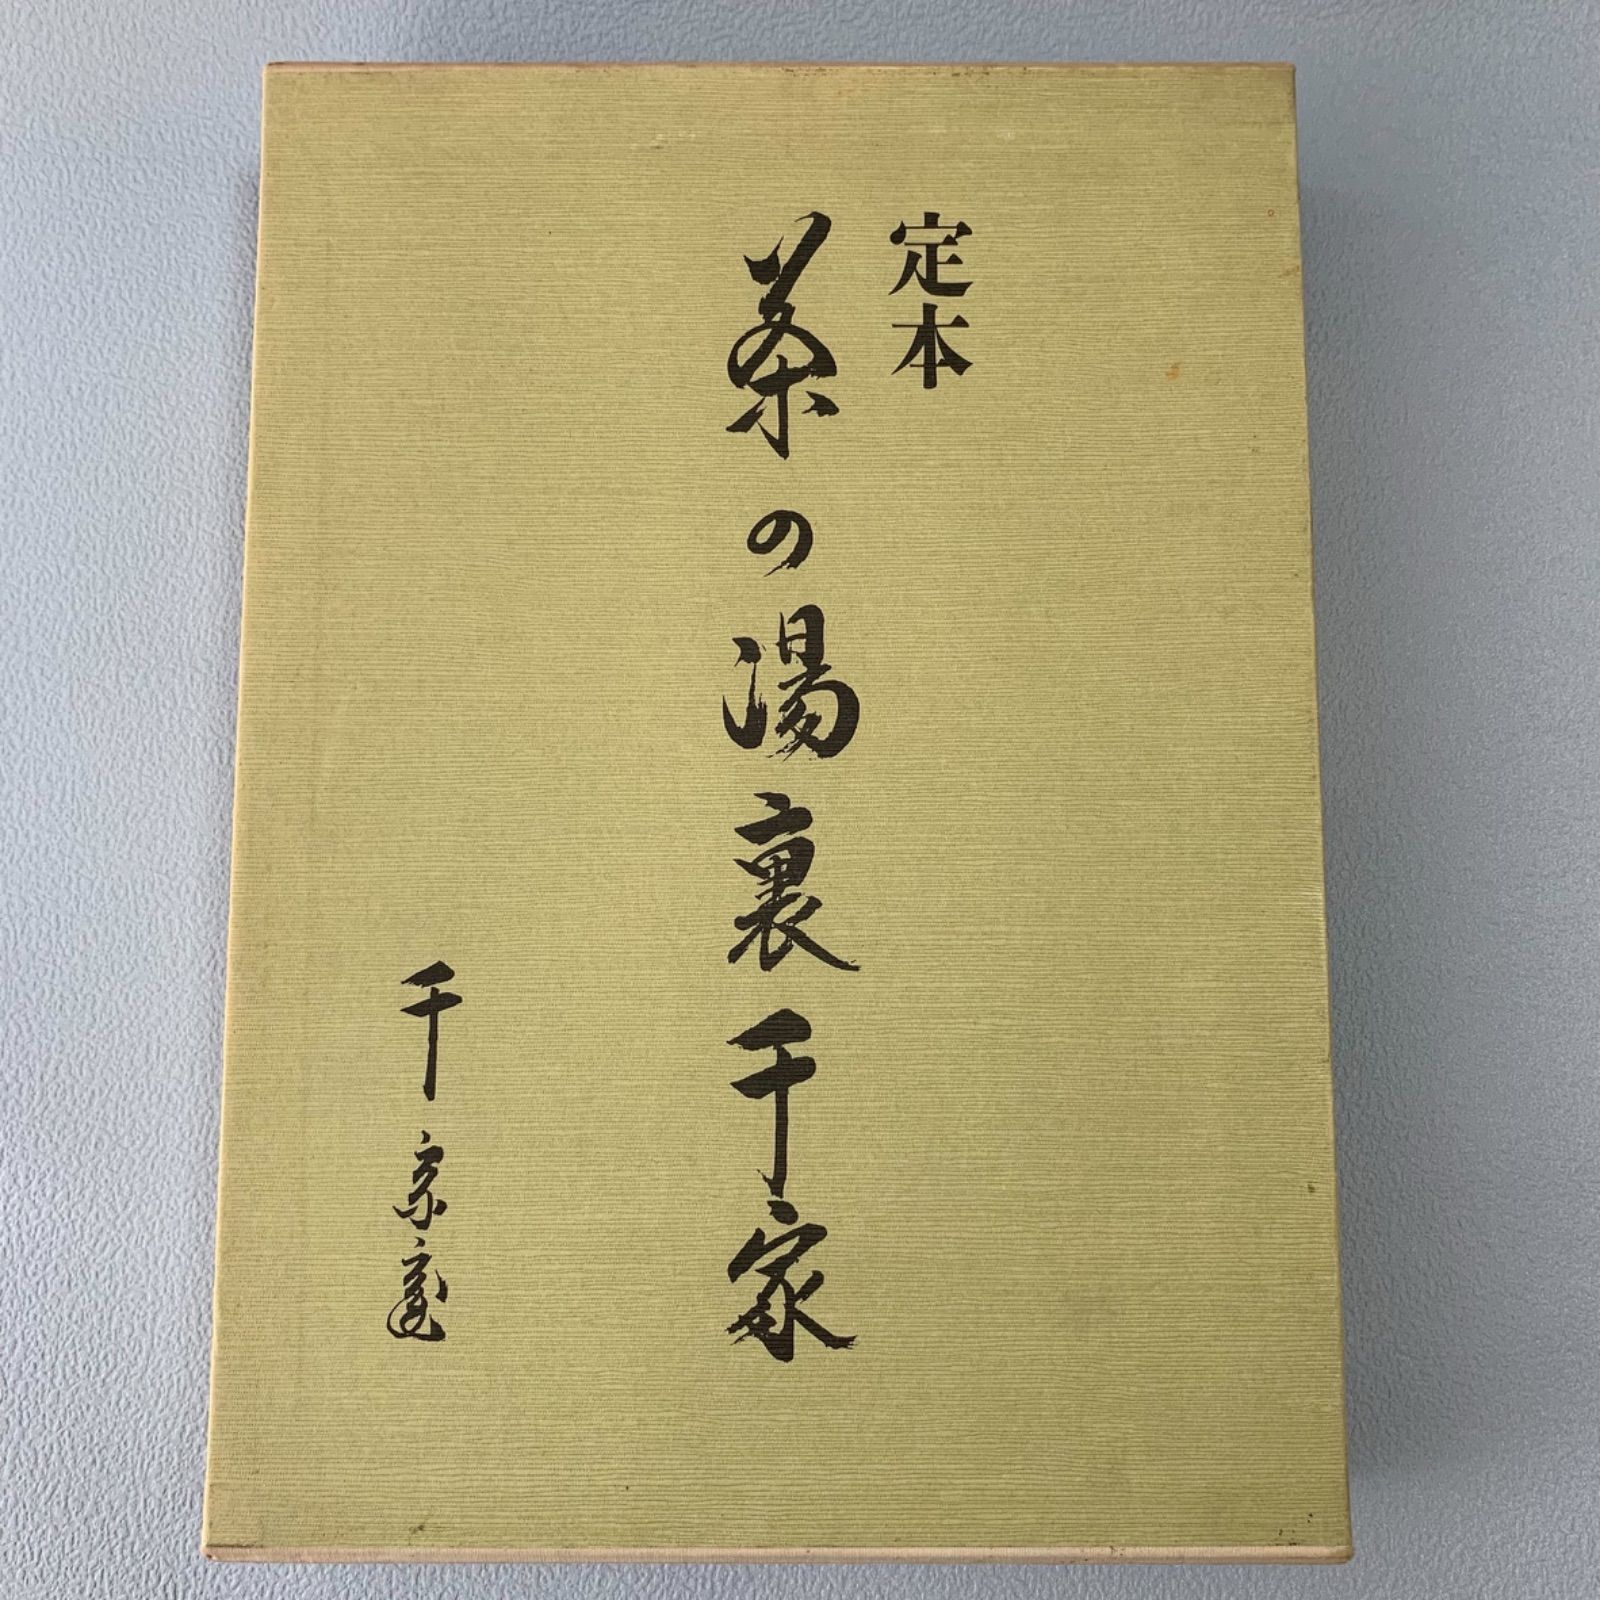 定本
茶の湯裏千家
千宗室